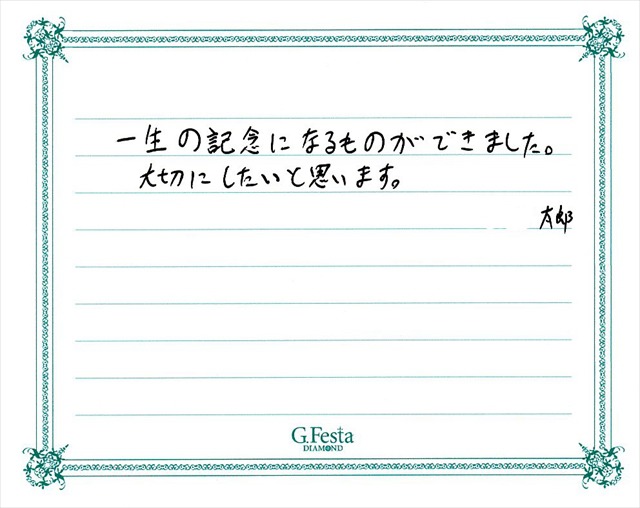 一生の記念になるものができました。
大切にしたいと思います。
太郎
G.Festa
DIAMOND